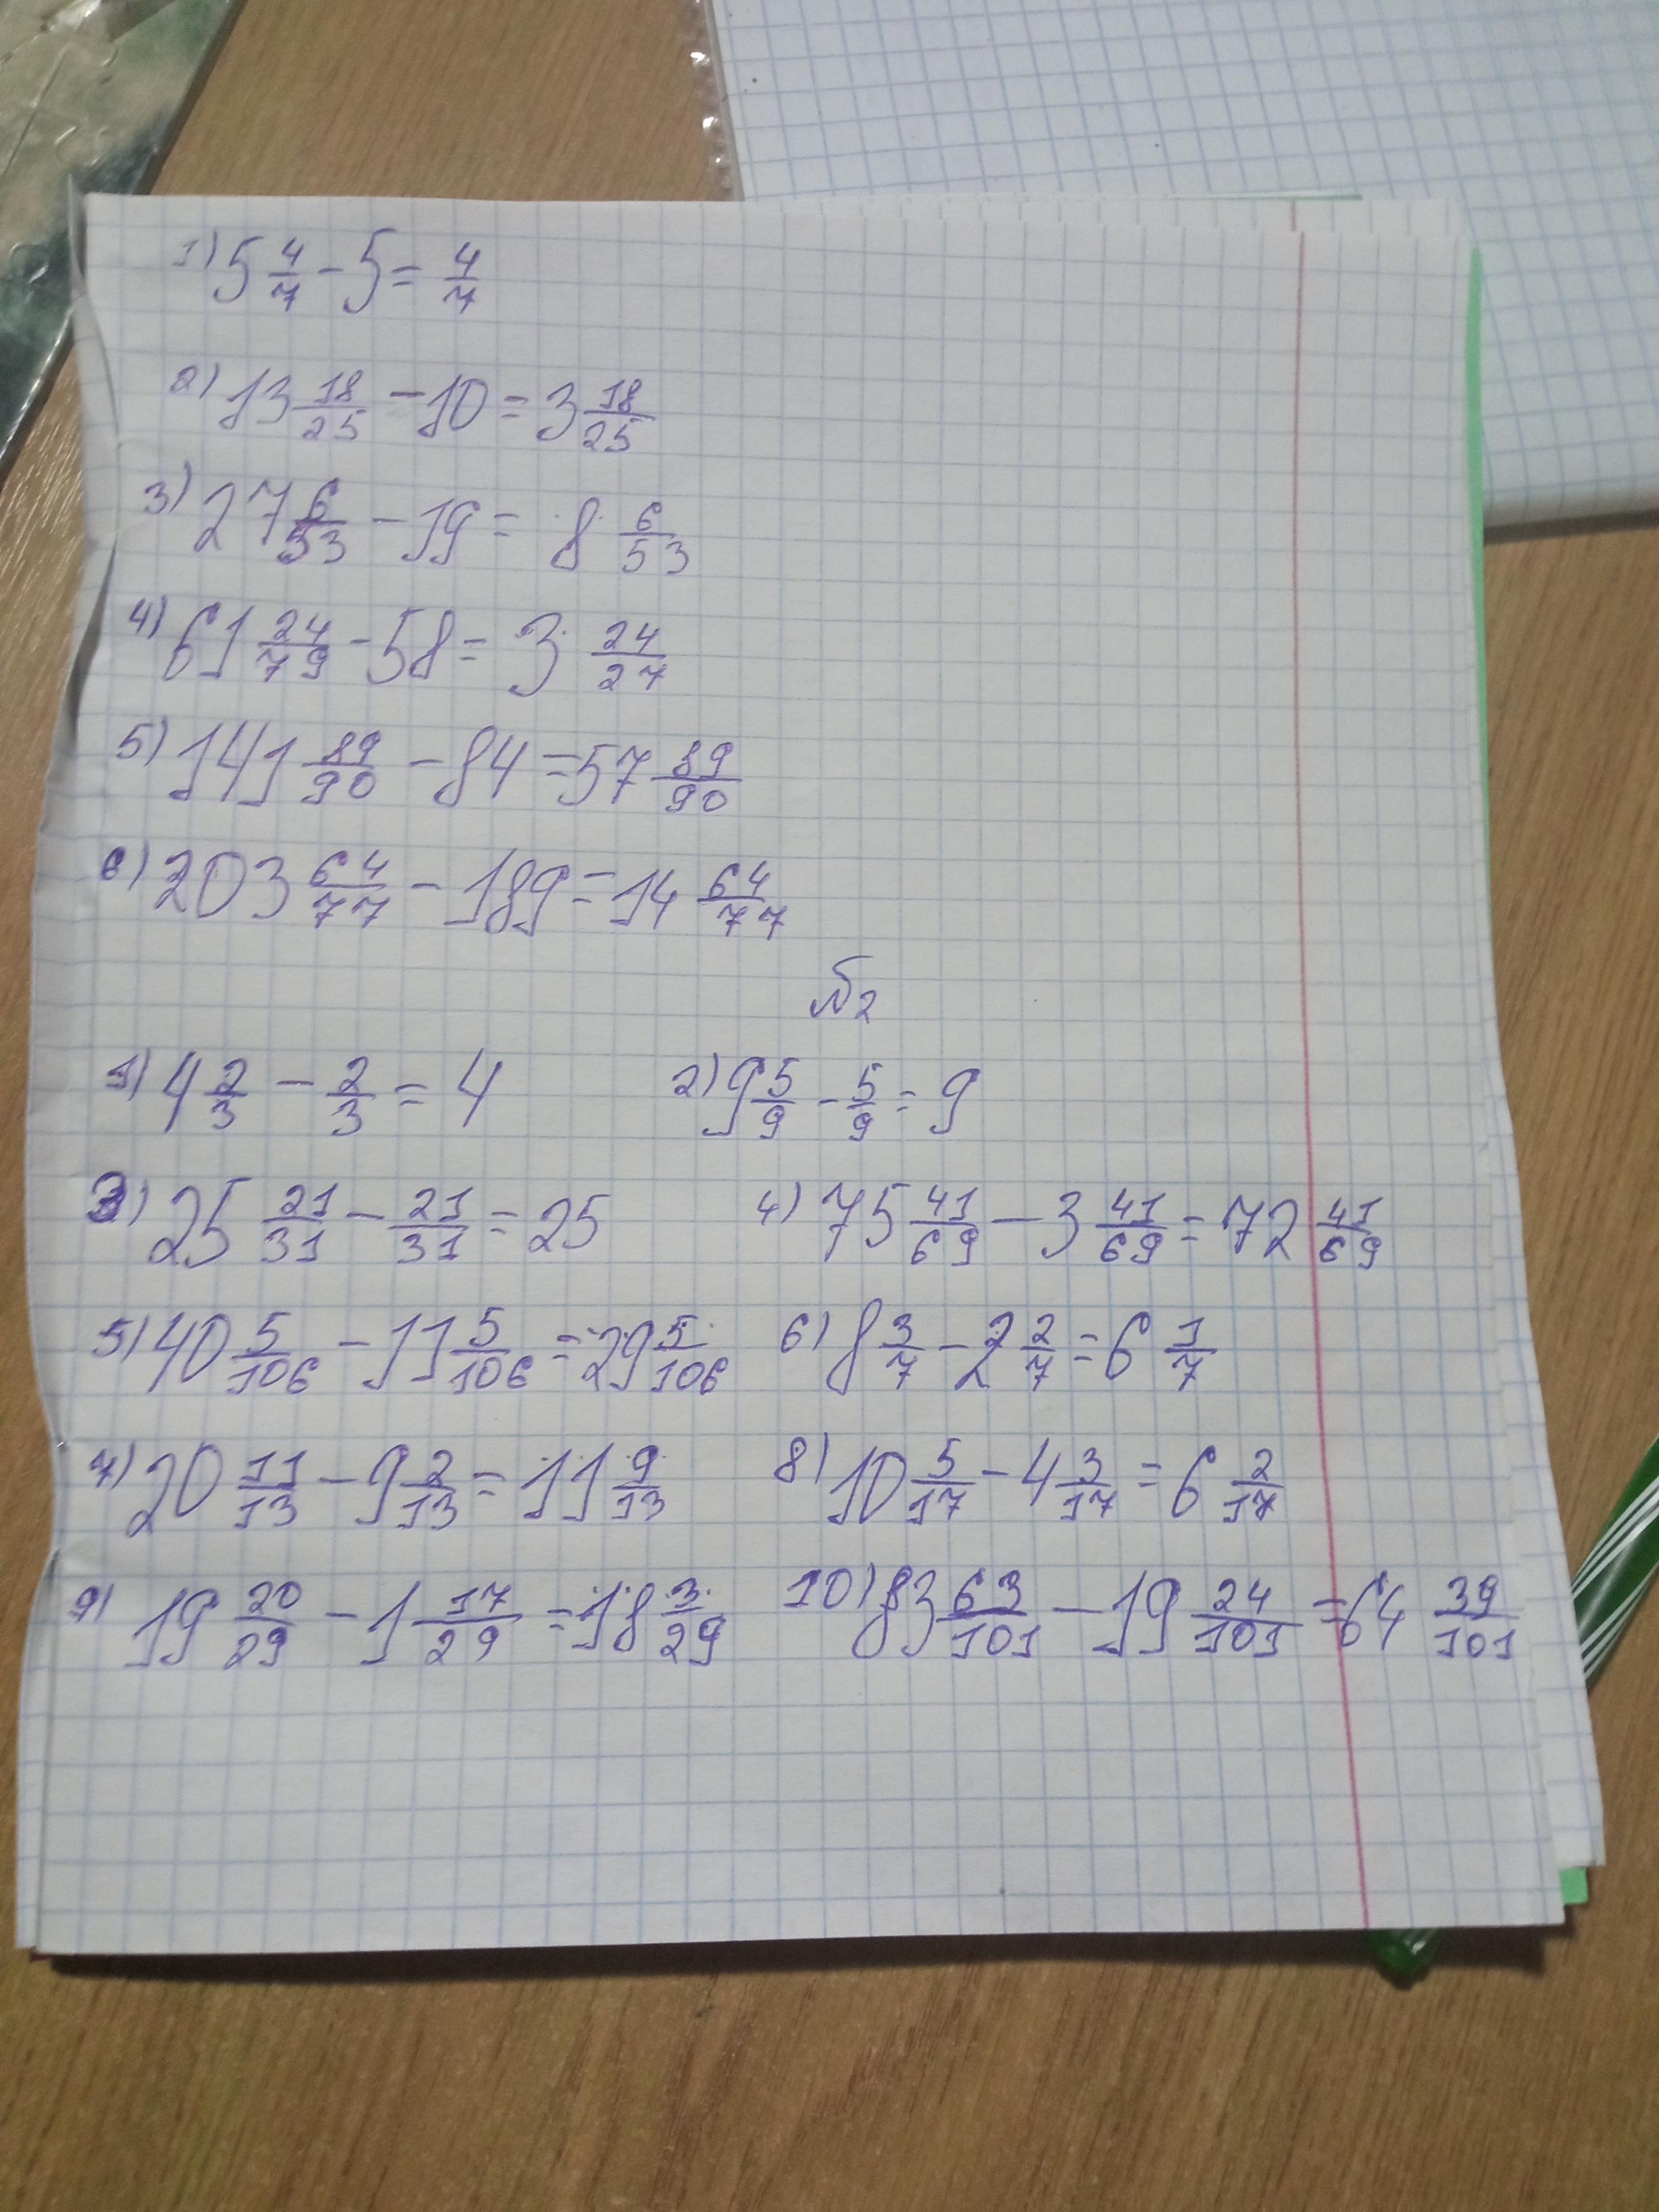 1) 5 4/7 - 5 = 4/7
2) 13 18/25 - 10 = 3 18/25
3) 27 6/53 - 19 = 8 6/53
4) 61 24/79 - 58 = 3 24/27
5) 141 89/90 - 84 = 57 89/90
6) 203 64/77 - 189 = 14 64/77
№2
1) 4 2/3 - 2/3 = 4 2) 9 5/9 - 5/9 = 9
3) 25 21/31 - 21/31 = 25 4) 75 41/69 - 3 41/69 = 72 41/69
5) 40 5/106 - 11 5/106 = 29 5/106 6) 8 3/7 - 2 2/7 = 6 1/7
7) 20 11/13 - 9 2/13 = 11 9/13 8) 10 5/17 - 4 3/17 = 6 2/17
9) 19 20/29 - 1 17/29 = 18 3/29 10) 83 63/101 - 19 24/101 = 64 39/101